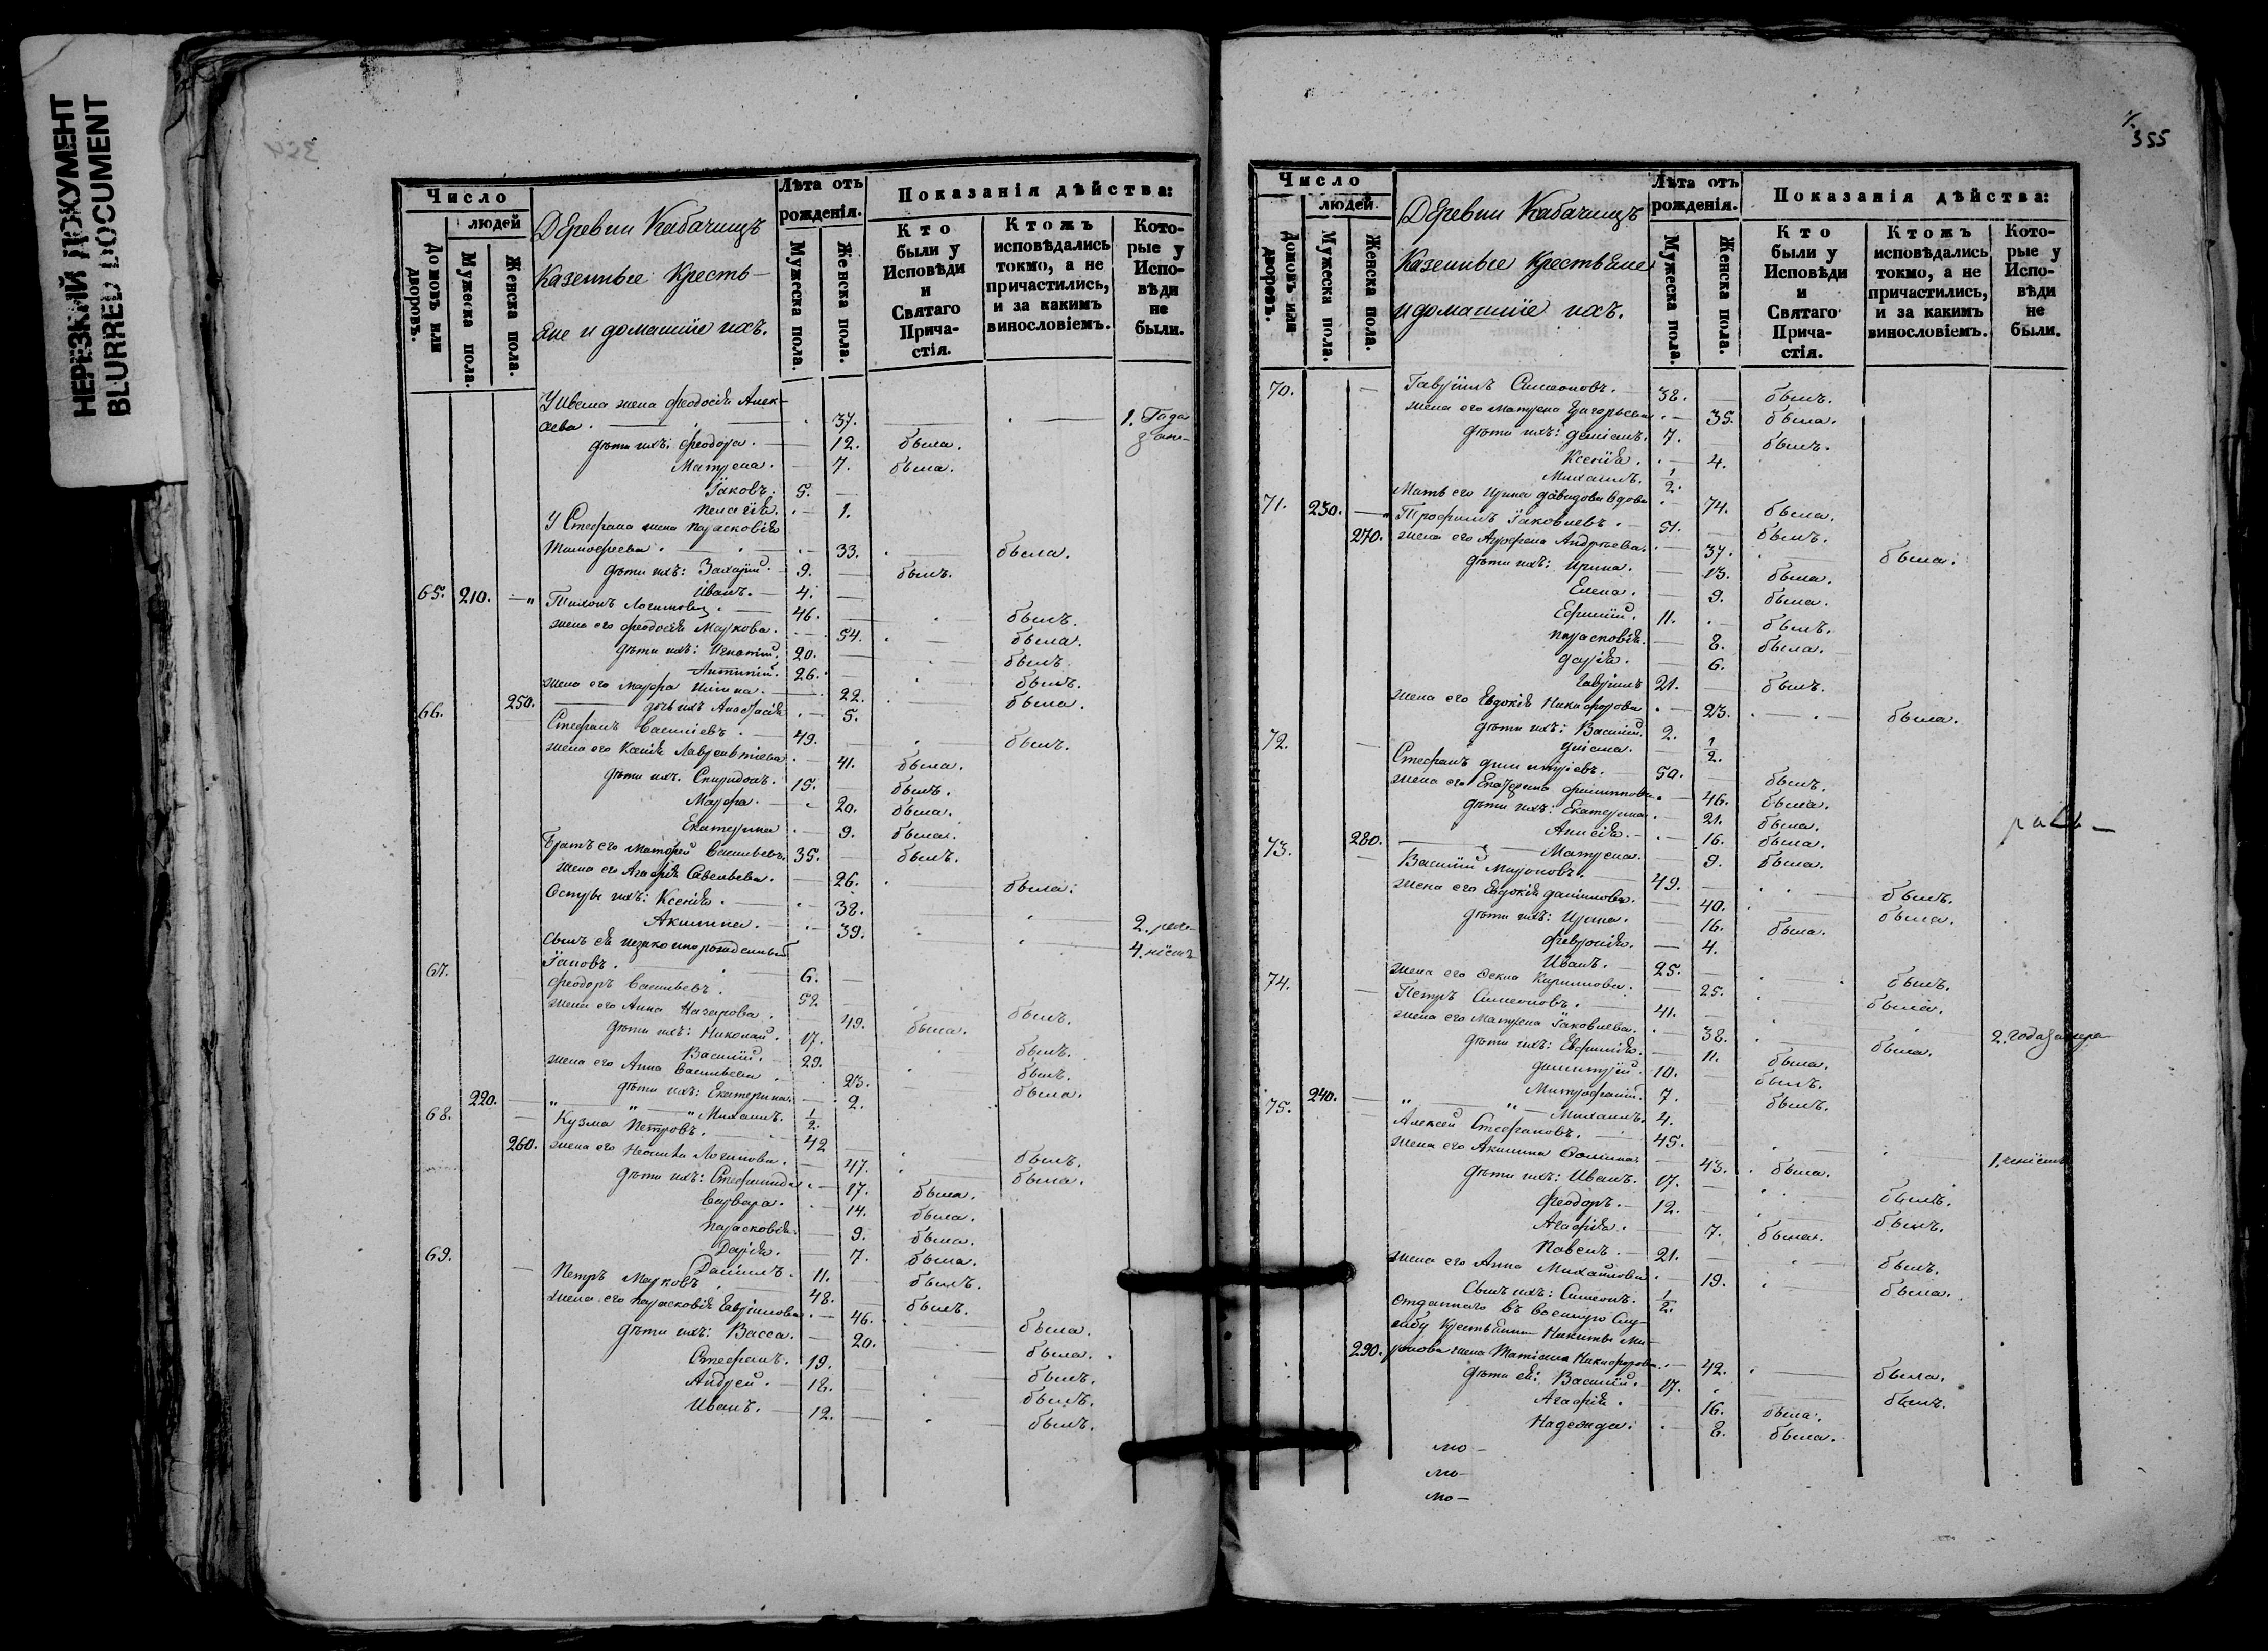 НЕРЕЗКИЙ ДОКУМЕНТ
BLURRED DOCUMENT
Число
людей
Домовъ или дворовъ.
Мужеска пола.
Женска пола.
Деревни Кабачищъ
Казенные Кресть-
яне и домашніе ихъ.
Лѣта отъ рожденія.
Мужеска пола.
Женска пола.
Показанія дѣйства:
Кто были у Исповѣди и Святаго Прича-стія.
Ктожъ исповѣдались токмо, а не причастились, и за какимъ винословіемъ.
Кото-рые у Испо-вѣди не были.
У Ивана жена Феодосія Алек-
сѣева. 37. 1. Года
дѣти ихъ: Феодора. 12. была.
Матрена. 7. была.
Іаковъ. 5.
Пелагія. 1.
У Стефана жена Парасковія
Тимофеева. 33. была.
дѣти ихъ: Захарій. 9. былъ.
Иванъ. 4.
65. 210. Тихонъ Логиновъ. 46. былъ.
жена его Феодосія Маркова. 54. была.
дѣти ихъ: Игнатій. 20. былъ.
26. былъ.
жена его Марфа 22. была.
250. дочь ихъ Анастасія 5.
66. Стефанъ Василіевъ. 49. былъ.
жена его Ксенія Лаврентіева 41. была.
дѣти ихъ: Спиридонъ. 15. былъ.
Марфа. 20. была.
Екатерина 9. была.
Братъ его Матфей Васильевъ. 35. былъ.
жена его Агафія Савельева. 26. была.
Сестры ихъ: Ксенія. 38.
Акилина. 39. 2.
Сынъ ея незаконнорожденный 4.
Іаковъ. 6.
67. Феодоръ Васильевъ. 52. былъ.
жена его Анна Назарова. 49. была.
дѣти ихъ: Николай. 17. былъ.
Василій. 29. былъ.
жена его Анна Васильева 23. была.
дѣти ихъ: Екатерина. 2.
220. Михаилъ. 1/2.
68. Кузма Петровъ. 42 былъ.
260. жена его Логинова. 47. была.
дѣти ихъ: Стефанида 17. была.
Варвара. 14. была.
Парасковія. 9. была.
Дарія. 7. была.
Даніилъ. 11. былъ.
69. Петръ Марковъ 48. былъ.
жена его Парасковія Гавріилова 46. была.
дѣти ихъ: Васса. 20. была.
Стефанъ. 19. былъ.
Андрей. 18. былъ.
Иванъ. 12. былъ.
355
Число
людей.
Домовъ или дворовъ.
Мужеска пола.
Женска пола.
Деревни Кабачищъ
Казенные Крестьяне
и домашніе ихъ.
Лѣта отъ рожденія.
Мужеска пола.
Женска пола.
Показанія дѣйства:
Кто были у Исповѣди и Святаго Прича-стія.
Ктожъ исповѣдались токмо, а не причастились, и за какимъ винословіемъ.
Кото-рые у Испо-вѣди не были.
70. Гавріилъ Симеоновъ. 38. былъ.
жена его Матрена Григорьева 35. была.
дѣти ихъ: Даміанъ. 7. былъ.
Ксенія. 4.
Михаилъ. 1/2.
Мать его Ирина Давидова вдова 74. была.
71. 230. Трофимъ Іаковлевъ. 51. былъ.
270. жена его Агрофена Андреева. 37. была.
дѣти ихъ: Ирина. 13. была.
Елена. 9. была.
Ефимій. 11. былъ.
Парасковія. 8. была.
Дарія. 6.
Гавріилъ 21. былъ.
жена его Евдокія Никифорова 23. была.
дѣти ихъ: Василій. 2.
1/2.
72. Стефанъ Димитріевъ. 50. былъ.
жена его Екатерина Филиппова 46. была.
дѣти ихъ: Екатерина. 21. была.
Анисія. 16. была.
280. Матрена. 9. была.
73. Василій Мироновъ. 49. былъ.
жена его Евдокія Даніилова. 40. была.
дѣти ихъ: Ирина. 16. была.
Февронія. 4.
Иванъ. 25. былъ.
жена его Кириллова. 25. была.
74. Петръ Симеоновъ. 41. 2. года
жена его Матрена Іаковлева. 38. была.
дѣти ихъ: Евфимія. 11. была.
Димитрій. 10. былъ.
Митрофаній. 7. былъ.
240. Михаилъ. 4.
75. Алексей Стефановъ. 45. 1.
жена его Акилина 43. была.
дѣти ихъ: Иванъ. 17. былъ.
Феодоръ. 12. былъ.
Агафія. 7. была.
Павелъ. 21. былъ.
жена его Анна Михайлова 19. была.
Сынъ ихъ: Симеонъ. 1/2.
Отданнаго въ военную слу-
жбу крестьянина Никиты Ми-
290. ронова жена Татіана Никифорова. 42. была.
дѣти ея: Василій. 17. былъ.
Агафія. 16. была.
Надежда. 8. была.
мо-
мо-
мо-